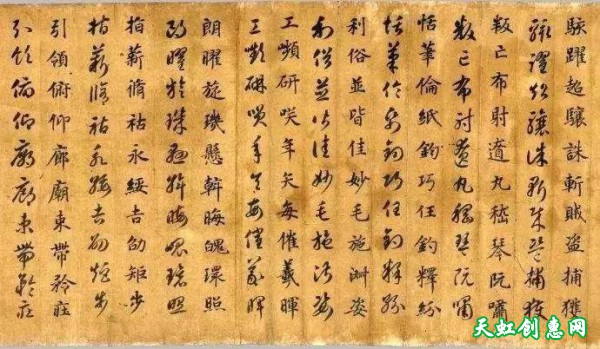 駭躍超驤誅斬賊盗捕獲
駭躍超驤誅斬賊盗捕獲
叛亡布射遼丸嵇琴阮嘯
叛亡布射遼丸嵇琴阮嘯
恬筆倫紙鈞巧任釣釋紛
恬筆倫紙鈞巧任釣釋紛
利俗並皆佳妙毛施淑姿
利俗並皆佳妙毛施淑姿
工嚬研咲年矢每催羲暉
工嚬研咲年矢每催羲暉
朗曜旋璣懸斡晦魄環照
朗曜旋璣懸斡晦魄環照
指薪脩祜永綏吉劭矩步
指薪脩祜永綏吉劭矩步
引領俯仰廊廟束帶矜莊
引領俯仰廊廟束帶矜莊
天虹创惠网